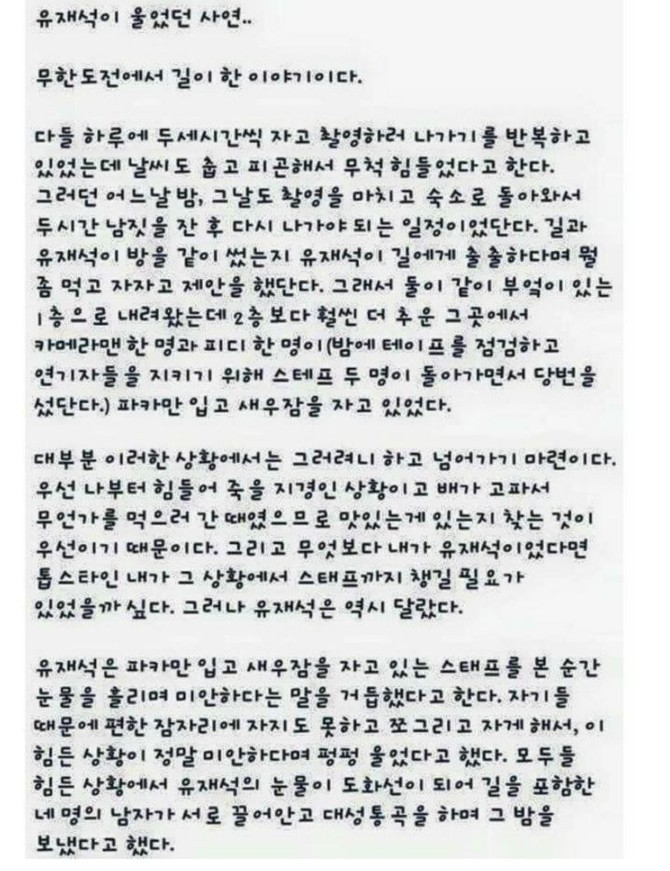 유재석이 울었던 사연..
무한도전에서 길이 한 이야기이다.
다들 하루에 두세시간씩 자고 촬영하러 나가기를 반복하고
있었는데 날씨도 춥고 피곤해서 무척 힘들었다고 한다.
그러던 어느날 밤, 그날도 촬영을 마치고 숙소로 돌아와서
두시간 남짓을 잔 후 다시 나가야 되는 일정이었단다. 길과
유재석이 방을 같이 썼는지 유재석이 길에게 출출하다며 뭘
좀 먹고 자자고 제안을 했단다. 그래서 둘이 같이 부엌이 있는
1층으로 내려왔는데 2층보다 훨씬 더 추운 그곳에서
카메라맨 한 명과 피디 한 명이(밤에 테이프를 점검하고
연기자들을 지키기 위해 스테프 두 명이 돌아가면서 당번을
섰단다.) 파카만 입고 새우잠을 자고 있었다.
대부분 이러한 상황에서는 그러려니 하고 넘어가기 마련이다.
우선 나부터 힘들어 죽을 지경인 상황이고 배가 고파서
무언가를 먹으러 간 때였으므로 맛있는게 있는지 찾는 것이
우선이기 때문이다. 그리고 무엇보다 내가 유재석이었다면
톱스타인 내가 그 상황에서 스태프까지 챙길 필요가
있었을까 싶다. 그러나 유재석은 역시 달랐다.
유재석은 파카만 입고 새우잠을 자고 있는 스태프를 본 순간
눈물을 흘리며 미안하다는 말을 거듭했다고 한다. 자기들
때문에 편한 잠자리에 자지도 못하고 쪼그리고 자게 해서, 이
힘든 상황이 정말 미안하다며 펑펑 울었다고 했다. 모두들
힘든 상황에서 유재석의 눈물이 도화선이 되어 길을 포함한
네 명의 남자가 서로 끌어안고 대성통곡을 하며 그 밤을
보냈다고 했다.